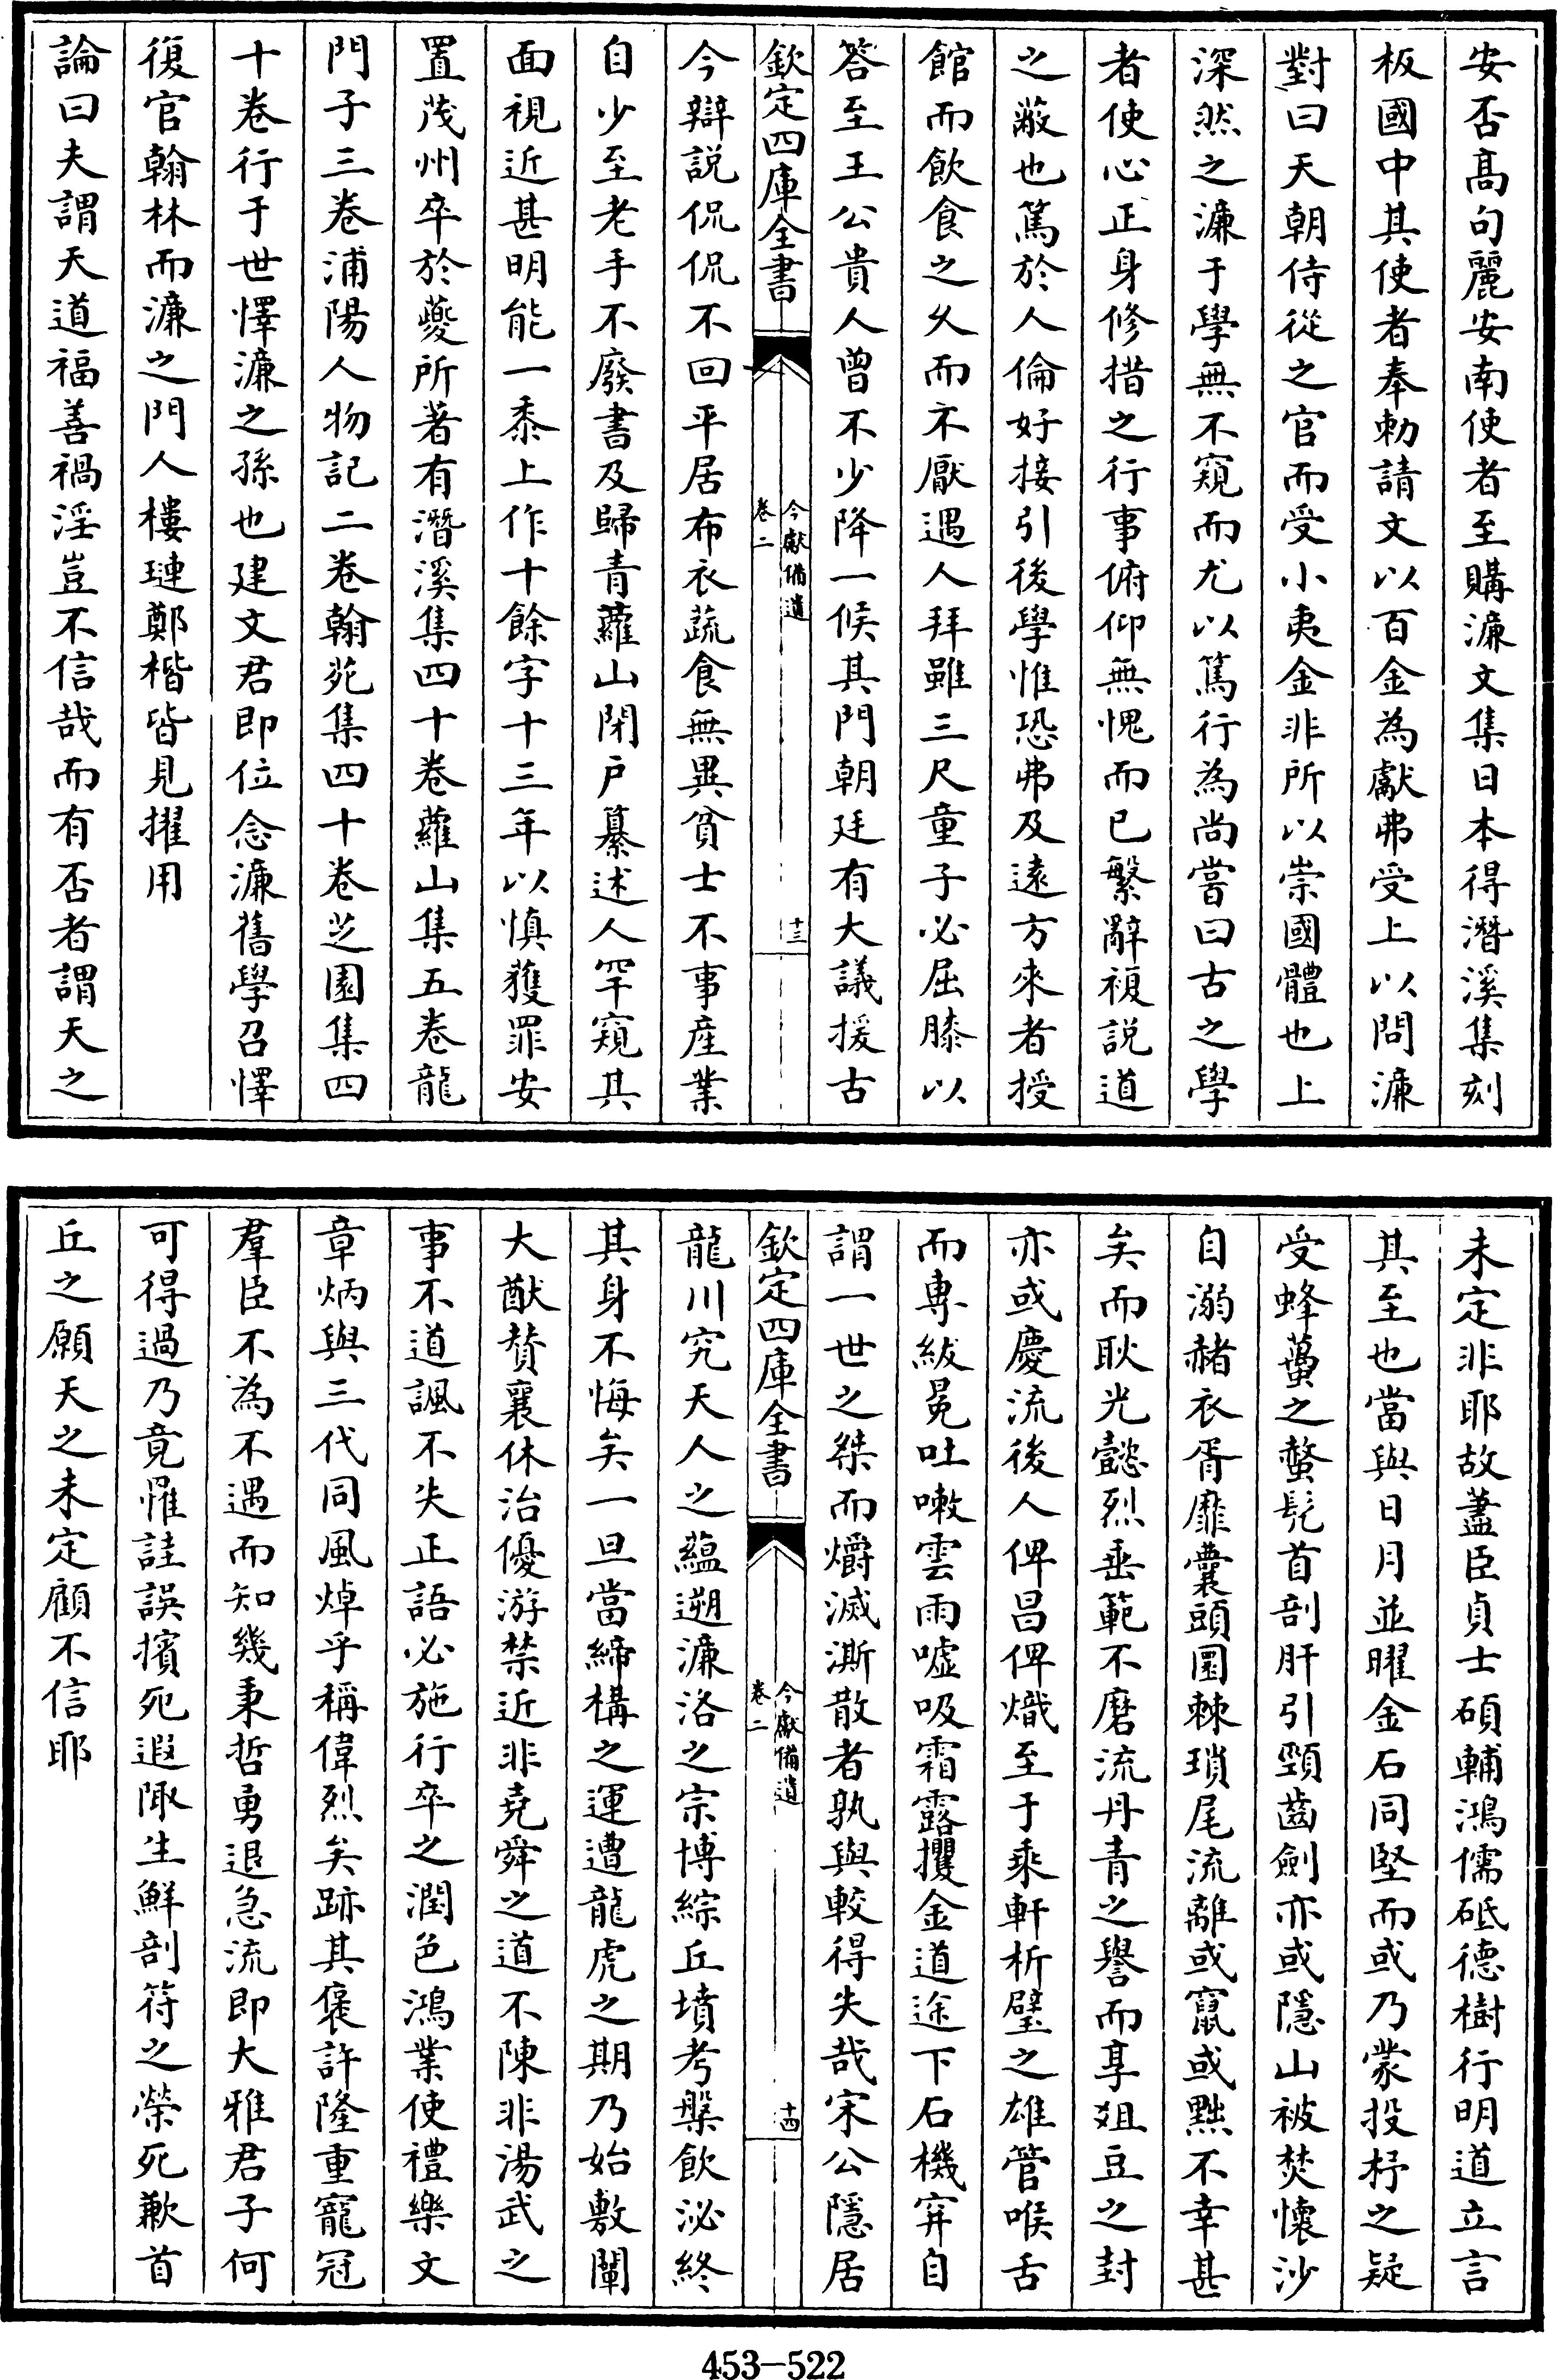 安否髙句麗安南使者至購濂文集日本得潛溪集刻
板國中其使者奉勅請文以百金為獻弗受上以問濂
對曰天朝侍從之官而受小夷金非所以崇國體也上
深然之濂于學無不窺而尤以篤行為尚嘗曰古之學
者使心正身修措之行事俯仰無愧而已繁辭複説道
之蔽也篤於人倫好接引後學惟恐弗及逺方來者授
館而飲食之乆而不厭遇人拜雖三尺童子必屈膝以
答至王公貴人曾不少降一候其門朝廷有大議援古
欽定四庫全書
今獻備遺
卷二
十三
今辯説侃侃不回平居布衣蔬食無異貧士不事産業
自少至老手不廢書及歸青蘿山閉户纂述人罕窺其
面視近甚明能一黍上作十餘字十三年以慎獲罪安
置茂州卒於夔所著有潛溪集四十卷蘿山集五卷龍
門子三卷浦陽人物記二卷翰苑集四十卷芝園集四
十卷行于世懌濂之孫也建文君即位念濂舊學召懌
復官翰林而濂之門人樓璉鄭楷皆見擢用
論曰夫謂天道福善禍淫豈不信哉而有否者謂天之
未定非耶故藎臣貞士碩輔鴻儒砥德樹行明道立言
其至也當與日月並曜金石同堅而或乃蒙投杼之疑
受蜂蠆之螫髡首剖肝引頸齒劍亦或隱山被焚懷沙
自溺赭衣胥靡囊頭圜棘瑣尾流離或竄或黜不幸甚
矣而耿光懿烈垂範不磨流丹青之譽而享俎豆之封
亦或慶流後人俾昌俾熾至于乘軒析璧之雄管喉舌
而專紱冕吐嗽雲雨噓吸霜露攫金道途下石機穽自
謂一世之桀而爝滅澌散者孰與較得失哉宋公隱居
欽定四庫全書
今獻備遺
卷二
十四
龍川究天人之蘊遡濂洛之宗博綜丘墳考槃飲泌終
其身不悔矣一旦當締構之運遭龍虎之期乃始敷闡
大猷賛襄休治優游禁近非堯舜之道不陳非湯武之
事不道諷不失正語必施行卒之潤色鴻業使禮樂文
章炳與三代同風焯乎稱偉烈矣跡其褒許隆重寵冠
羣臣不為不遇而知幾秉哲勇退急流即大雅君子何
可得過乃竟罹詿誤擯死遐陬生鮮剖符之榮死歉首
丘之願天之未定顧不信耶
453-522